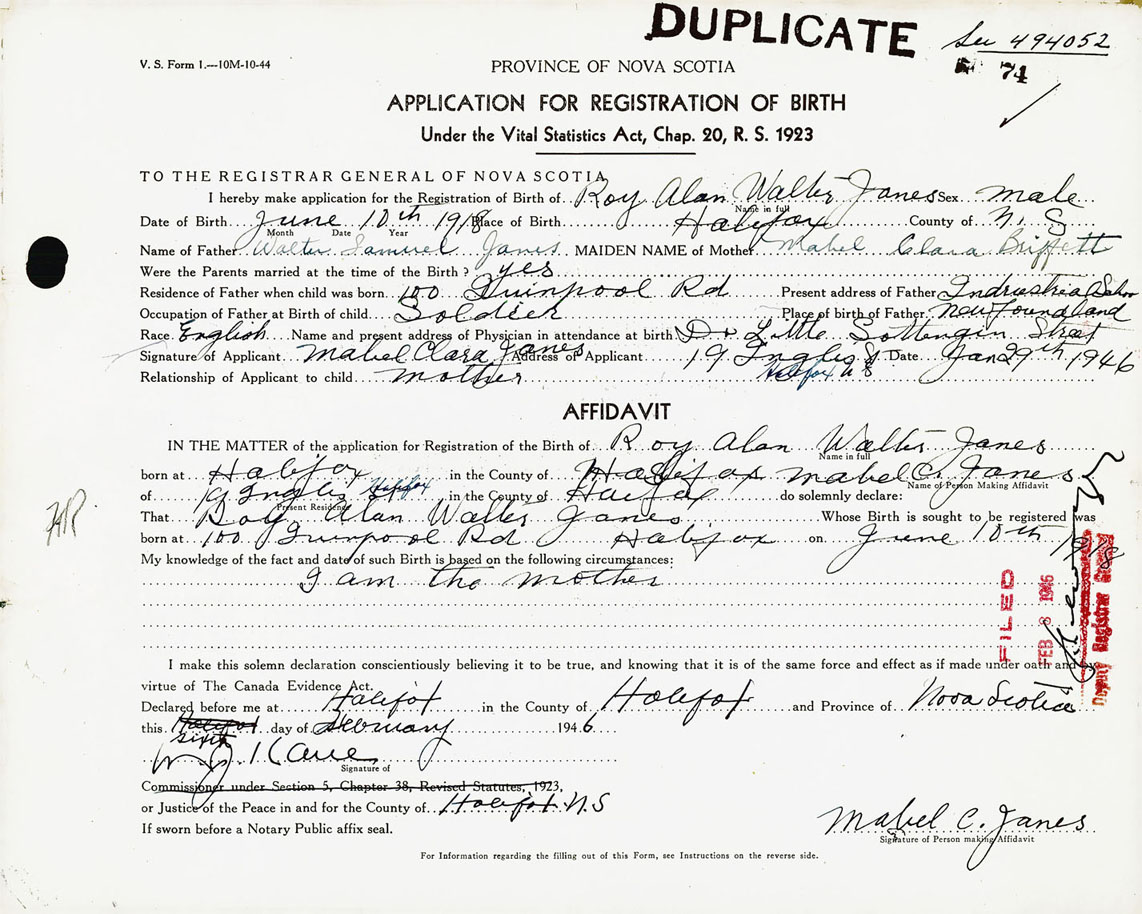 DUPLICATE
See 494052
74
V. S. Form 1.—10M-10-44
PROVINCE OF NOVA SCOTIA
APPLICATION FOR REGISTRATION OF BIRTH
Under the Vital Statistics Act, Chap. 20, R. S. 1923
TO THE REGISTRAR GENERAL OF NOVA SCOTIA
I hereby make application for the Registration of Birth of Roy Alan Walter Janes Sex male
Name in full
Date of Birth June 10th 1918 Place of Birth Halifax County of N. S
Month Date Year
Name of Father Walter Samuel Janes MAIDEN NAME of Mother Mabel Clara Briffett
Were the Parents married at the time of the Birth? yes
Residence of Father when child was born 100 Quinpool Rd Present address of Father Industria
Occupation of Father at Birth of child Soldier Place of birth of Father Newfoundland
Race English Name and present address of Physician in attendance at birth Dr Little Sottengin Street
Signature of Applicant Mabel Clara Janes Address of Applicant 19 Inglis St Date Jan 29th 1946
Halifax N S
Relationship of Applicant to child mother
AFFIDAVIT
IN THE MATTER of the application for Registration of the Birth of Roy Alan Walter Janes
Name in full
born at Halifax in the County of Halifax Mabel C. Janes
Name of Person Making Affidavit
of 19 Inglis St Halifax in the County of Haifax do solemnly declare:
Present Residence
That Roy Alan Walter Janes Whose Birth is sought to be registered was
born at 100 Quinpool Rd Halifax on June 10th 1918
My knowledge of the fact and date of such Birth is based on the following circumstances:
I am the mother
FILED
FEB 8 1946
Deputy Registrar General
I make this solemn declaration conscientiously believing it to be true, and knowing that it is of the same force and effect as if made under oath and
virtue of The Canada Evidence Act.
Declared before me at Halifax in the County of Halifax and Province of Nova Scotia
this Halifax sixth day of February 1946
W J Kane
Signature of
Commissioner under Section 5, Chapter 38, Revised Statutes, 1923,
or Justice of the Peace in and for the County of Halifax N.S
If sworn before a Notary Public affix seal.
Mabel C. Janes
Signature of Person making Affidavit
For Information regarding the filling out of this Form, see Instructions on the reverse side.